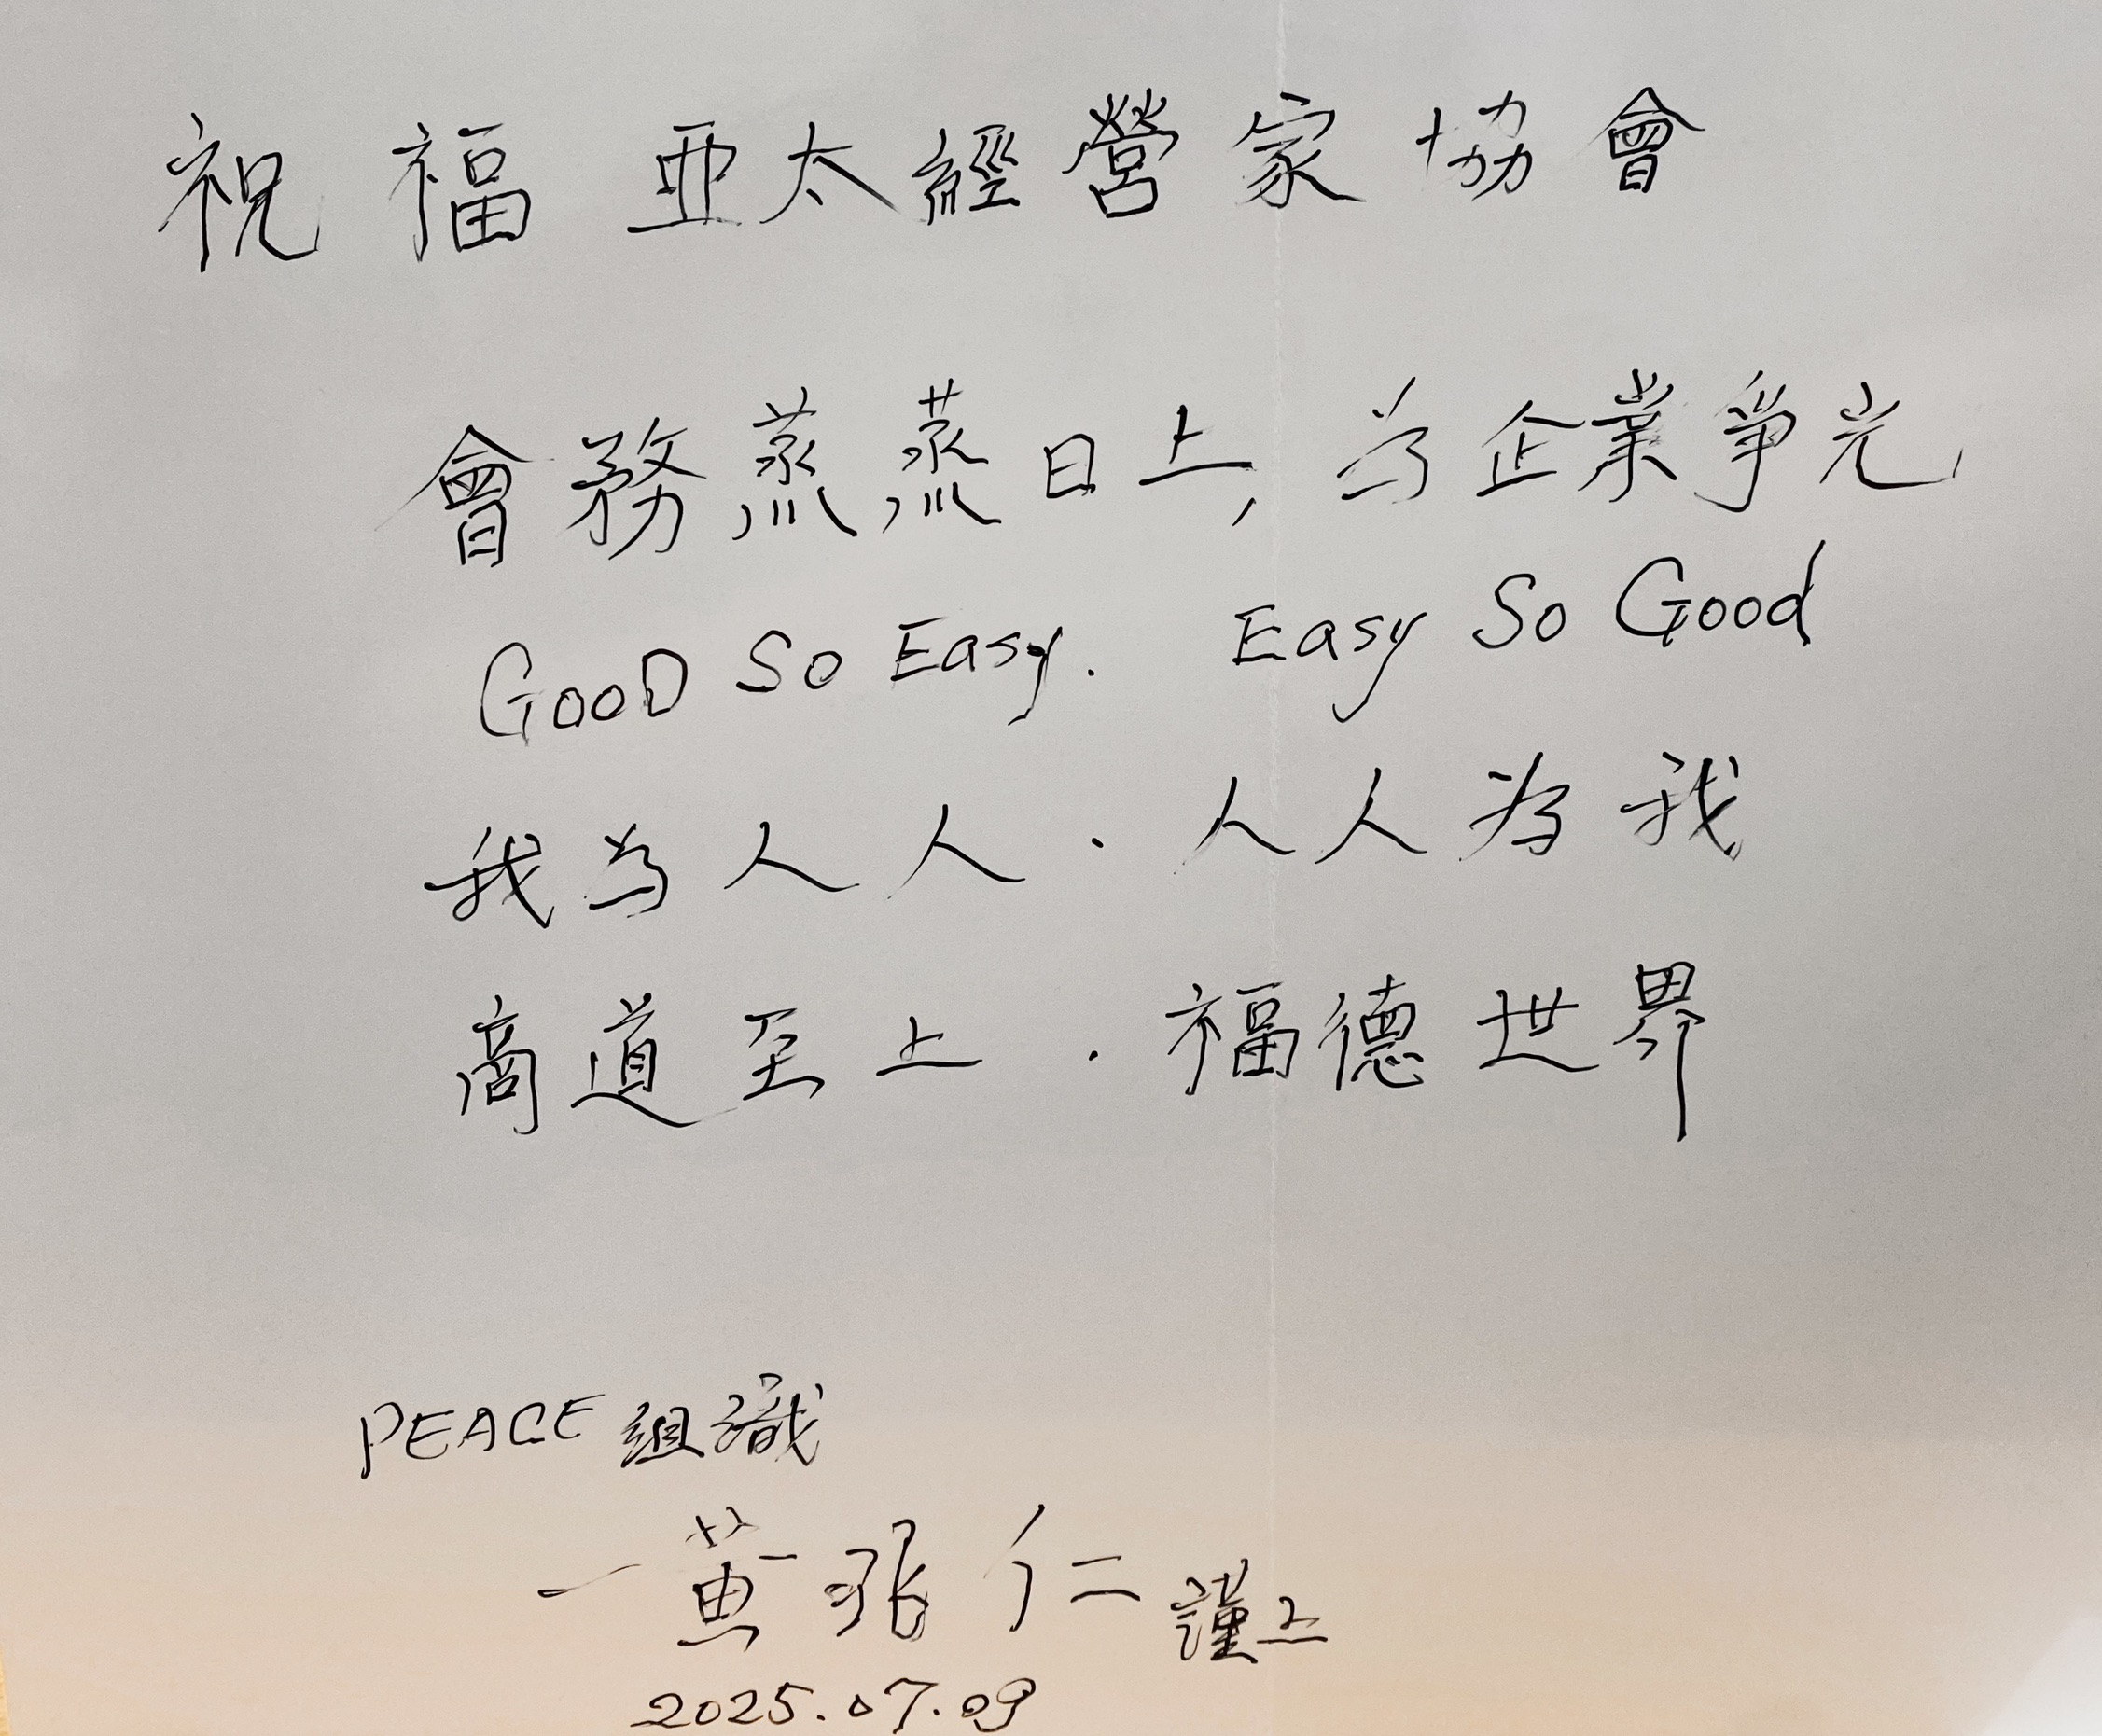 祝福 亞太經營家協會
會務蒸蒸日上, 為企業爭光
GooD So Easy. Easy So Good
我為人人 · 人人為我
商道至上 · 福德世界
PEACE 組識
黃 仁 謹上
2025.07.09